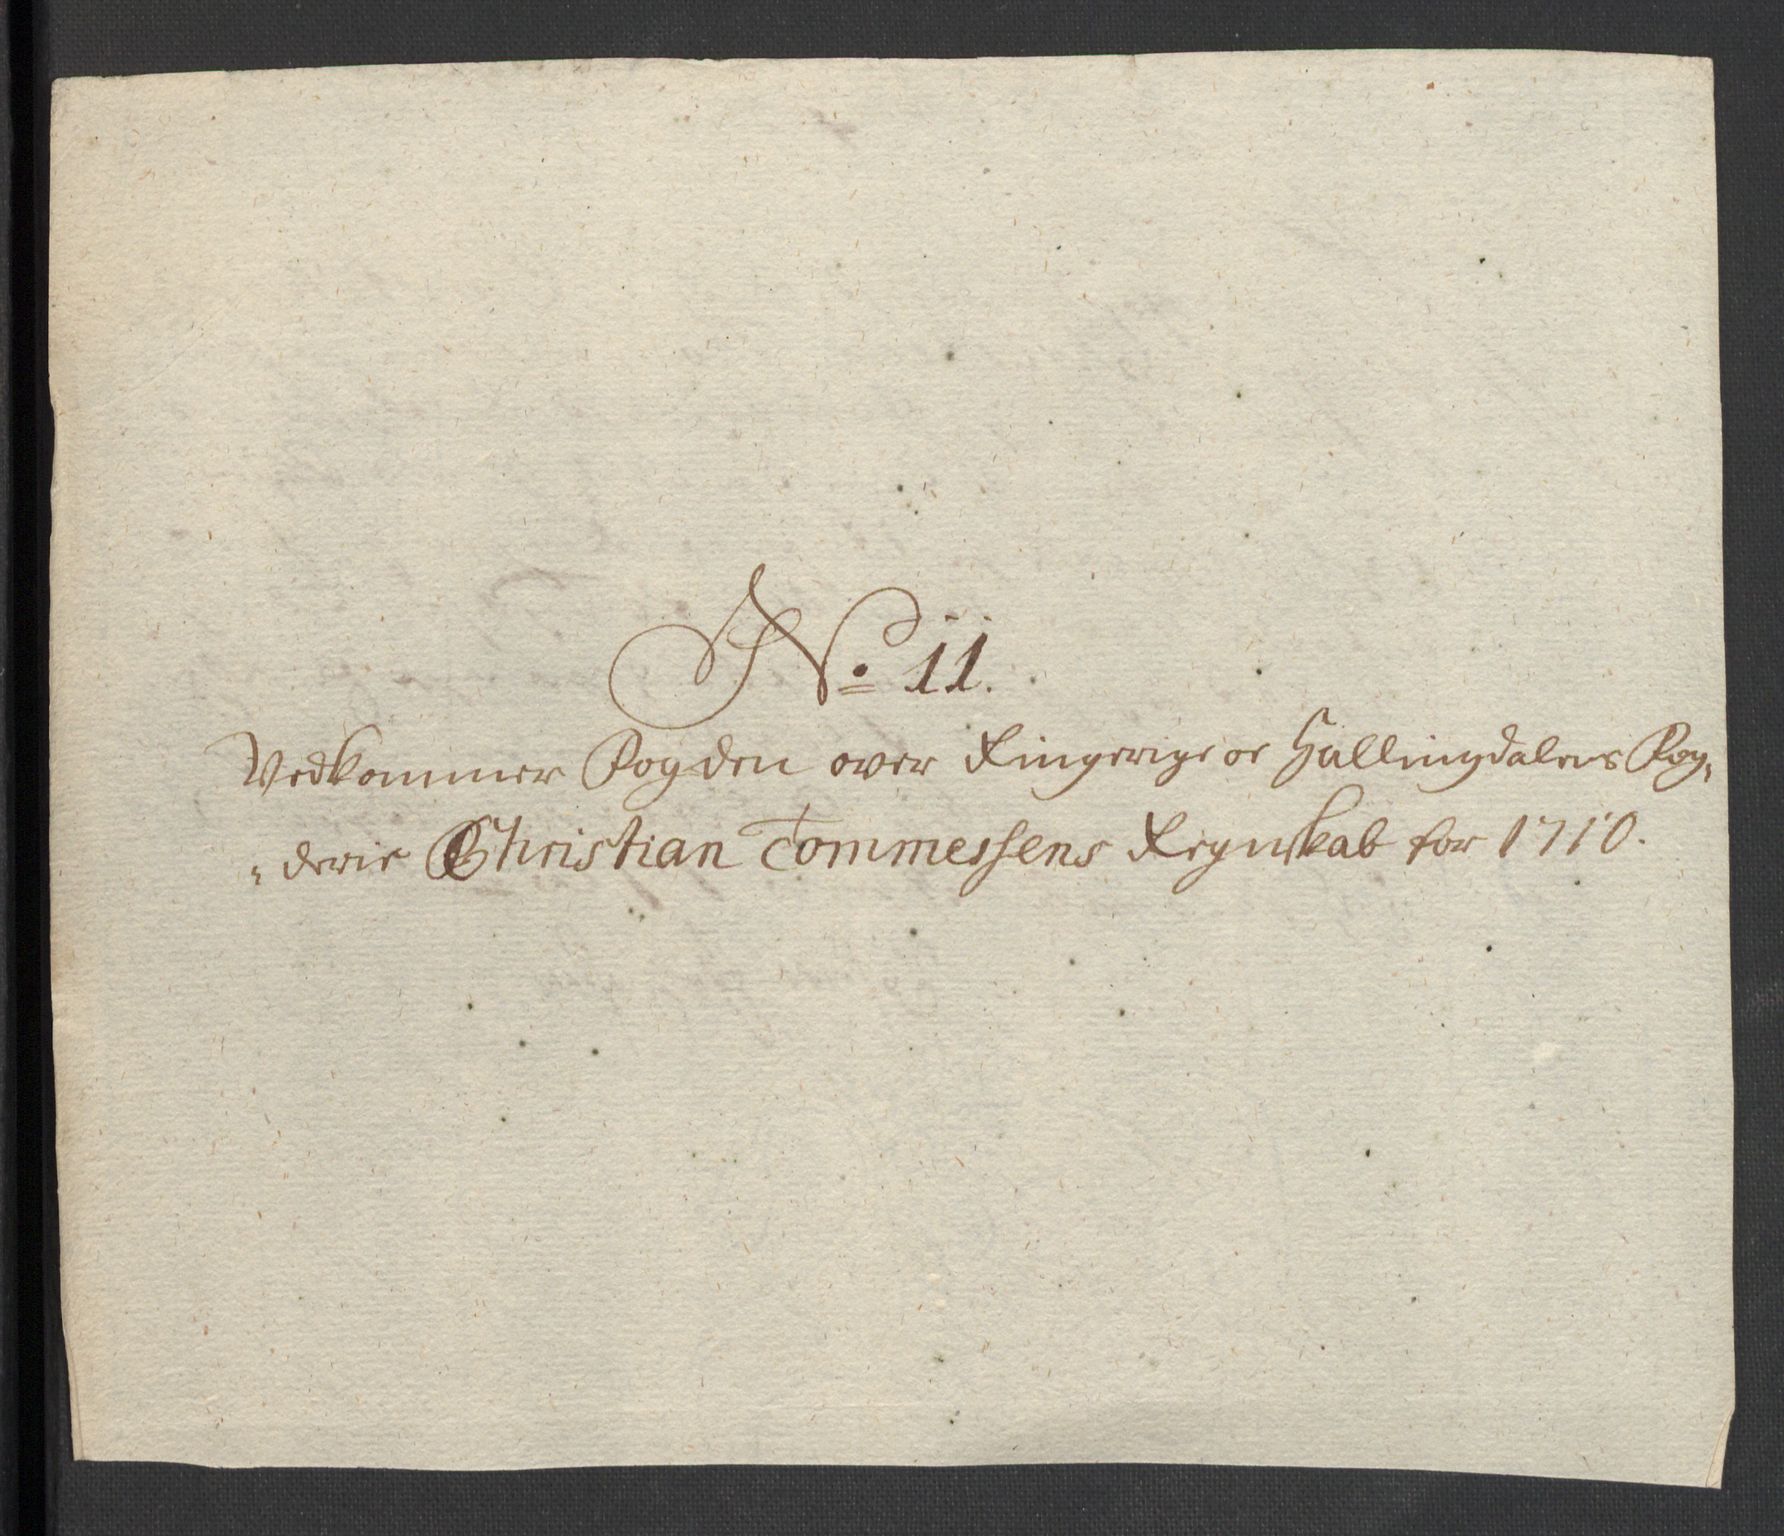 No 11.
Vedkommer Fogden over Ringerige oc Hallingdalens Fog,
„ derie Christian Tommessens Regnskab for 1710.